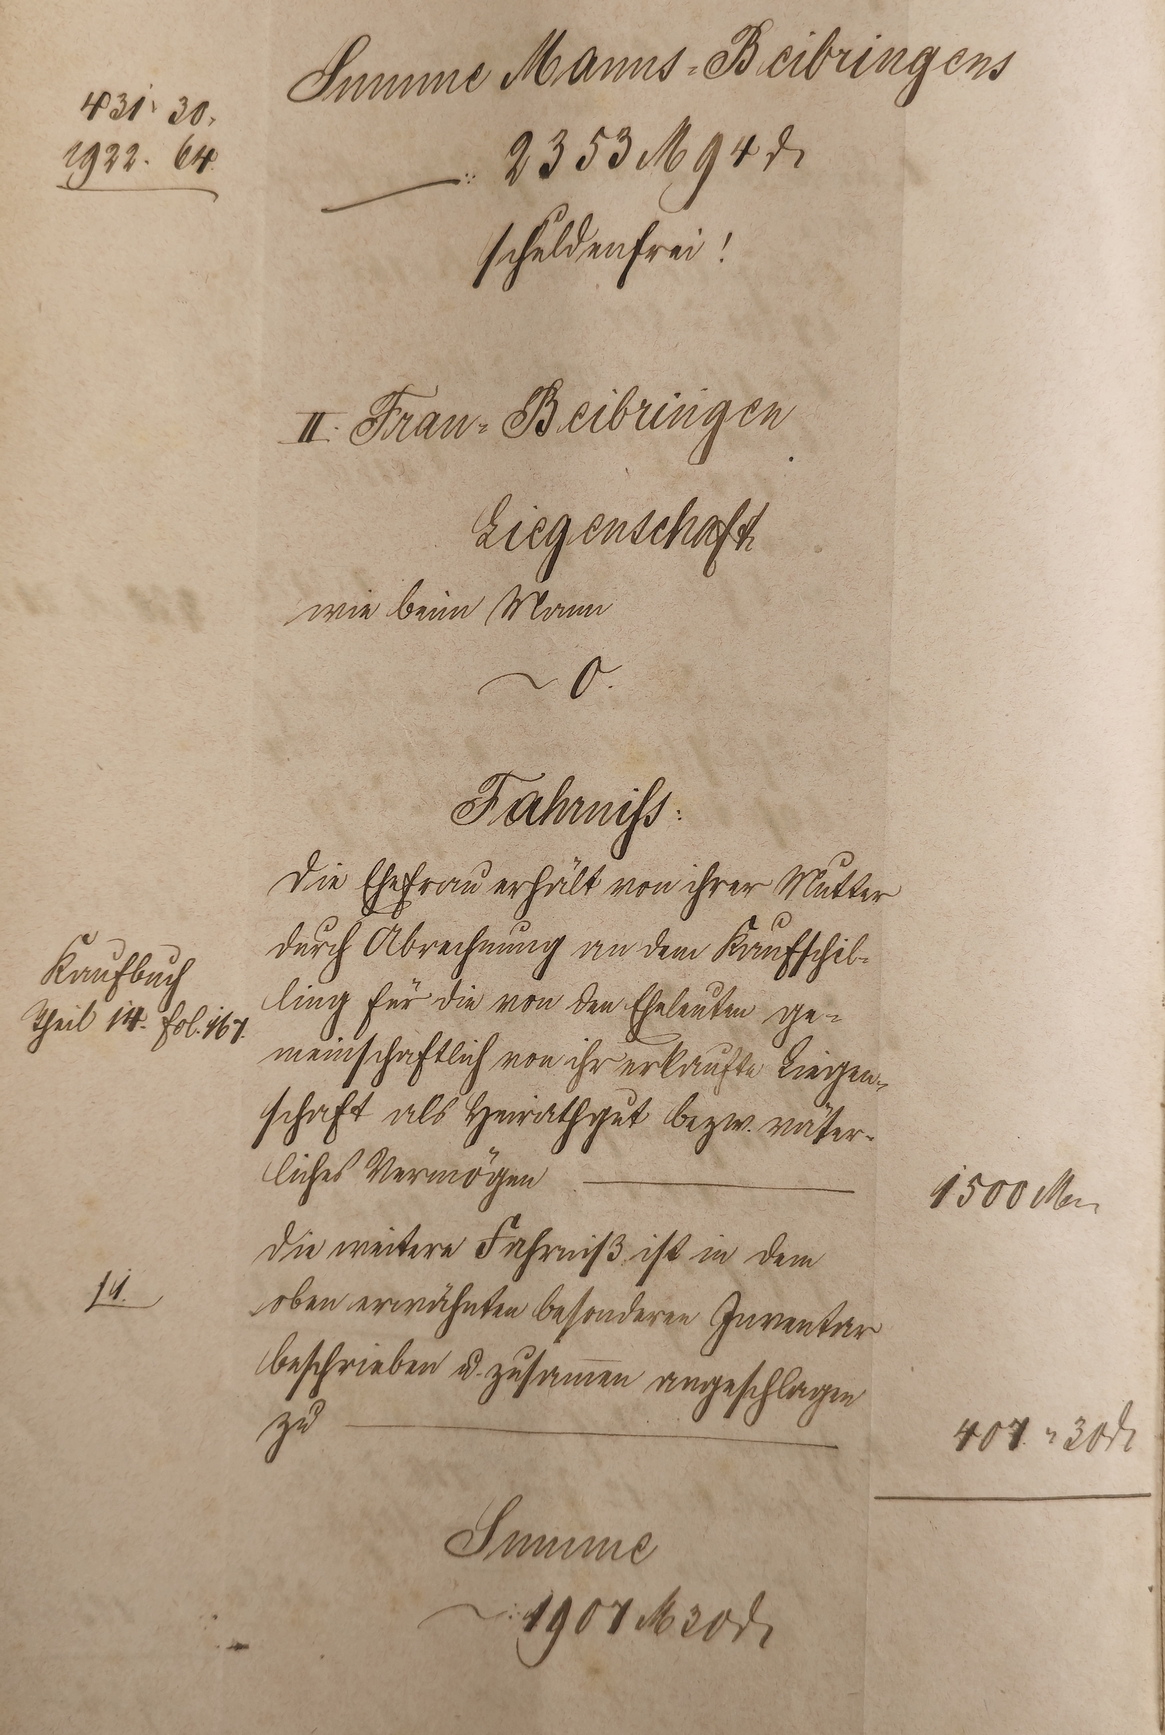 Summe Manns-Beibringens
431. 30.
1922. 64.
2353 M 94 d
schuldenfrei!
II. Frau-Beibringen
Liegenschaft
wie beim Mann
~ 0.
Fahrniss:
Die Ehefrau erhält von ihrer Mutter
durch Abrechnung an dem Kaufschil-
Kaufbuch
ling für die von den Eheleuten ge-
Theil 14. fol. 167.
meinschaftlich von ihr erkaufte Liegen-
schaft als Heirathgut bezw. väter-
liches Vermögen
1500 M
Die weitere Fahrniß ist in dem
oben erwähnten besonderen Inventar
beschrieben u. zusamen angeschlagen
zu
407. " 30 d
Summe
1907 M 30 d